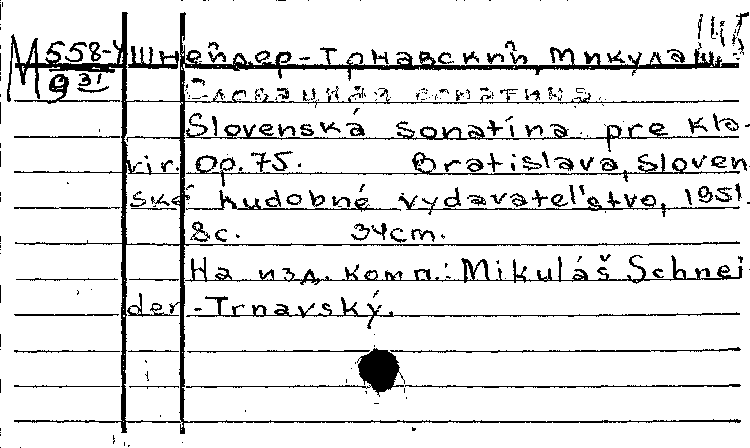 145
М 558-У Шнейдер-Трнавский, Микулаш.
9 31
Словацкая сонатина.
Slovenská sonatína pre kla-
vir. Op. 75. Bratislava, Sloven
ské hudobné vydavatel'stvo, 1951.
8c. 34cm.
На изд. комп.: Mikuláš Schnei
der-Trnavský.